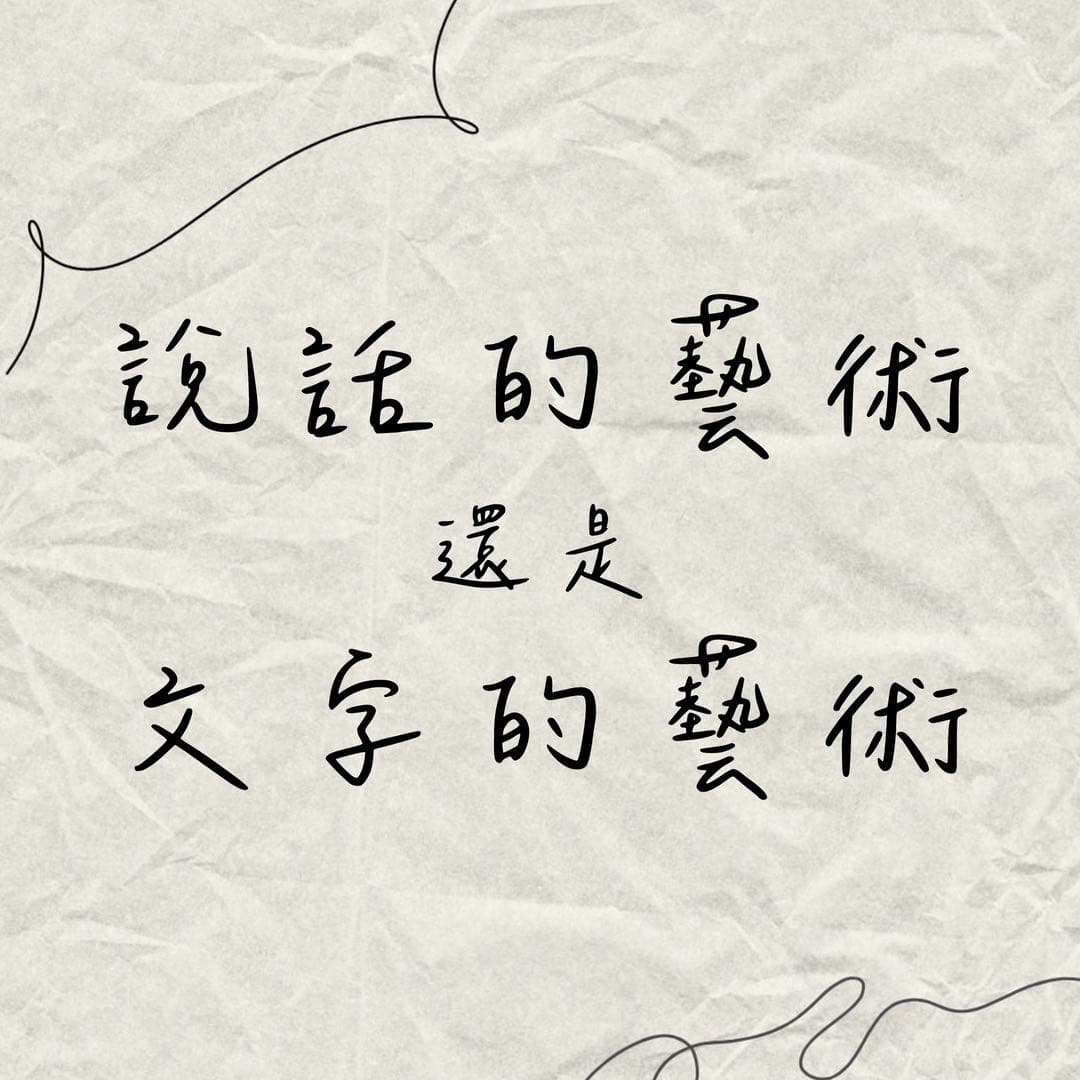 說話的藝術
還是
文字的藝術